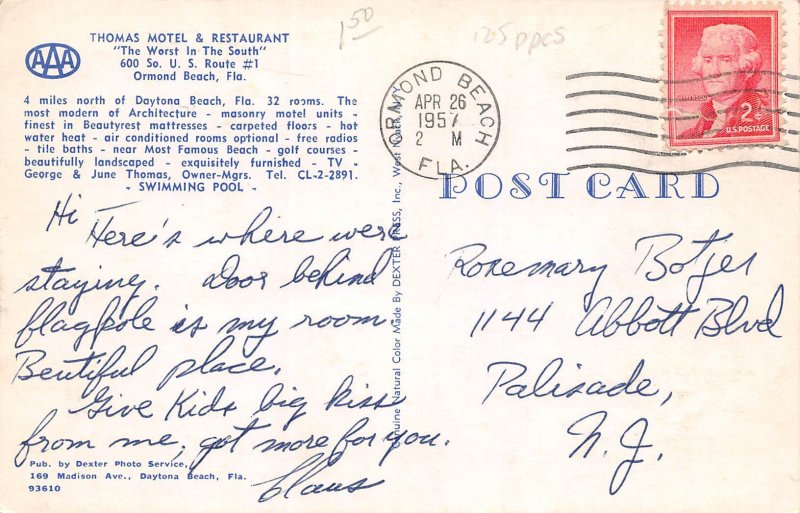 THOMAS MOTEL & RESTAURANT
"The Worst In The South"
600 So. U. S. Route #1
Ormond Beach, Fla.
AAA
4 miles north of Daytona Beach, Fla. 32 rooms. The
most modern of Architecture - masonry motel units -
finest in Beautyrest mattresses - carpeted floors - hot
water heat - air conditioned rooms optional - free radios
- tile baths - near Most Famous Beach - golf courses -
beautifully landscaped - exquisitely furnished - TV -
George & June Thomas, Owner-Mgrs. Tel. CL-2-2891.
- SWIMMING POOL -
Hi
Here's where were
staying. Door behind
flagpole is my room.
Beutiful place.
Give Kids big kiss
from me, got more for you.
Claus
Pub. by Dexter Photo Service,
169 Madison Ave., Daytona Beach, Fla.
93610
Genuine Natural Color Made By DEXTER PRESS, Inc., West Nyack, N.Y.
1 50
125 ppcs
ORMOND BEACH
APR 26
1957
2 M
FLA.
2¢
U.S. POSTAGE
POST CARD
Rosemary Botjer
1144 Abbott Blvd
Palisade,
N.J.